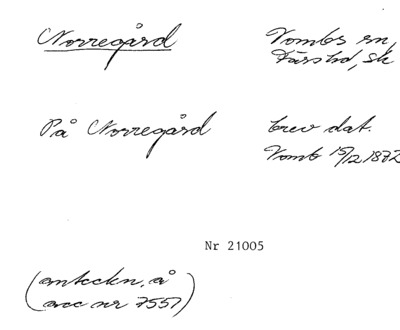 Norregård
Vombs sn,
Färs hd, Sk
På Norregård
brev dat.
Vomb 15/2 1872
Nr 21005
(anteckn. å
acc nr 7557)